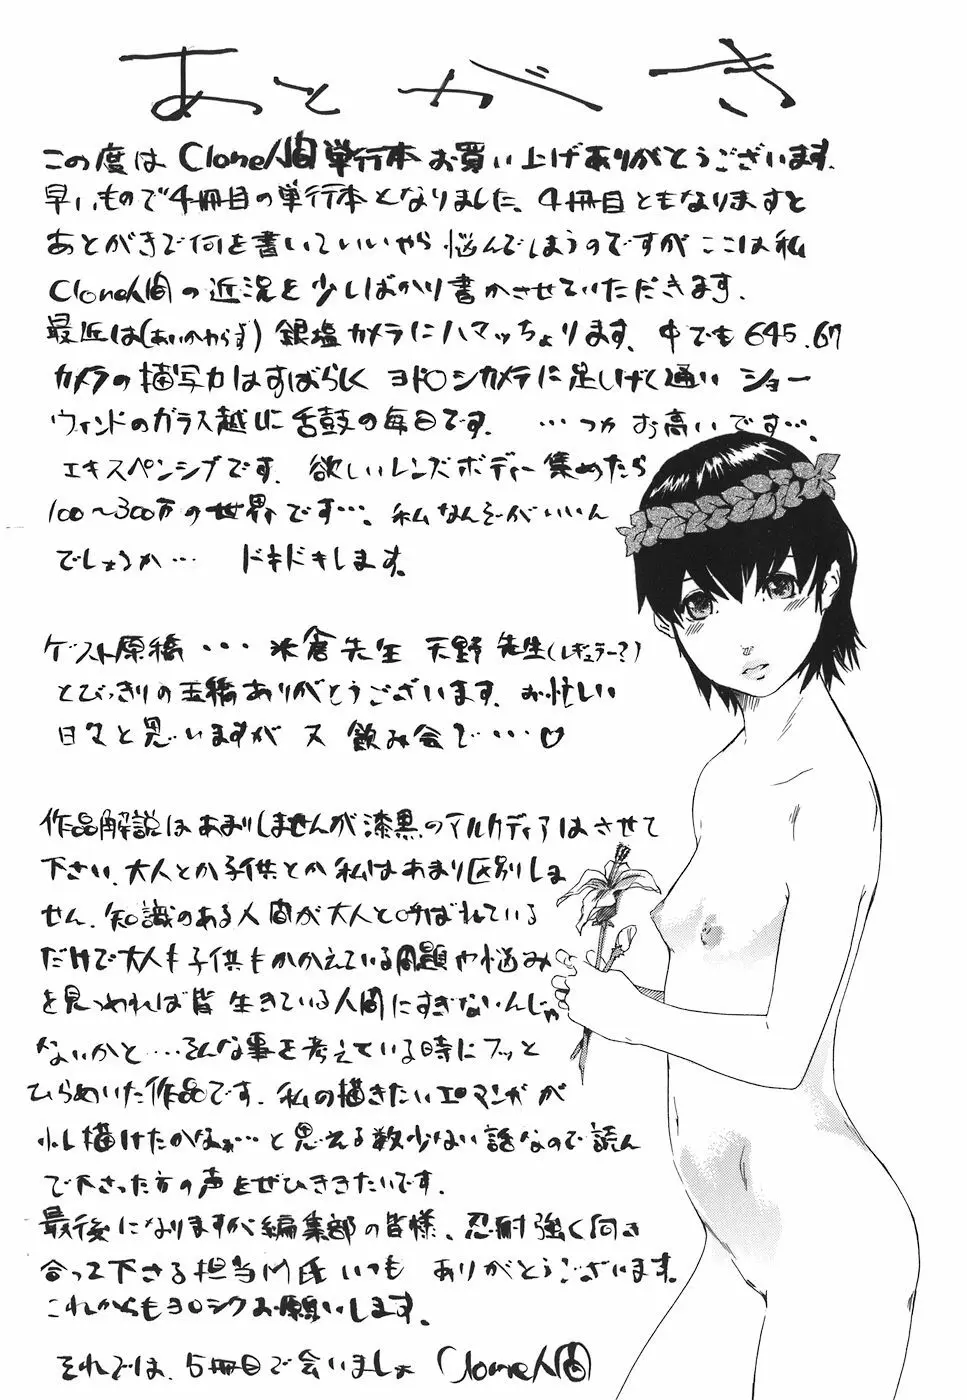 あとがき
この度は Clone人間 単行本 お買い上げありがとうございます.
早いもので4冊目の単行本となりました、4冊目ともなりますと
あとがきで何を書いていいやら悩んでしまうのですがここは私
Clone人間の近況を少しばかり書かさせていただきます.
最近は(あいかわらず)銀塩カメラにハマッちょります. 中でも645.67
カメラの描写力はすばらしく ヨドロシカメラに足しげく通い ショー
ウィンドのガラス越しに舌鼓の毎日です. …つかお高いです…、
エキスペンシブです. 欲しいレンズボディー集めたら
100〜300万の世界です…、私なんぞがいいん
でしょうか… ドキドキします.
ゲスト原稿・・・米倉先生 天野先生(レギュラー?)
とびっきりの玉稿ありがとうございます. お忙しい
日々と思いますが 又 飲み会で・・・♡
作品解説はあまりしませんが漆黒のアルカディアはさせて
下さい. 大人とか子供とか私はあまり区別しま
せん. 知識のある人間が大人と呼ばれている
だけで大人も子供もかかえている問題や悩み
を見つめれば皆 生きている人間にすぎないんじゃ
ないかと…そんな事を考えている時にフッと
ひらめいた作品です. 私の描きたいエロマンガが
少し描けたかなぁ…と思える数少ない話なので読ん
で下さった方の声をぜひききたいです.
最後になりますが編集部の皆様、忍耐強く向き
合って下さる担当M氏いつも ありがとうございます.
これからもヨロシクお願いします.
それでは、5冊目で会いましょ Clone人間